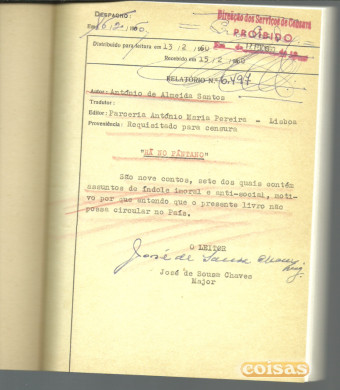 DESPACHO:
Direcção dos Serviços de Censura
PROIBIDO
Em
Distribuído para leitura em 13 / 2 / 960
Recebido em 15 / 2 / 960
RELATÓRIO N.º 6.497
Autor: António de Almeida Santos
Tradutor:
Editor: Parseria António Maria Pereira - Lisboa
Proveniência: Requisitado para censura
"RÃ NO PÂNTANO"
São nove contos, sete dos quais contêm
assuntos de índole imoral e anti-social, moti-
vo por que entendo que o presente livro não
possa circular no País.
O LEITOR
José de Sousa Chaves
José de Sousa Chaves
Major
coisas